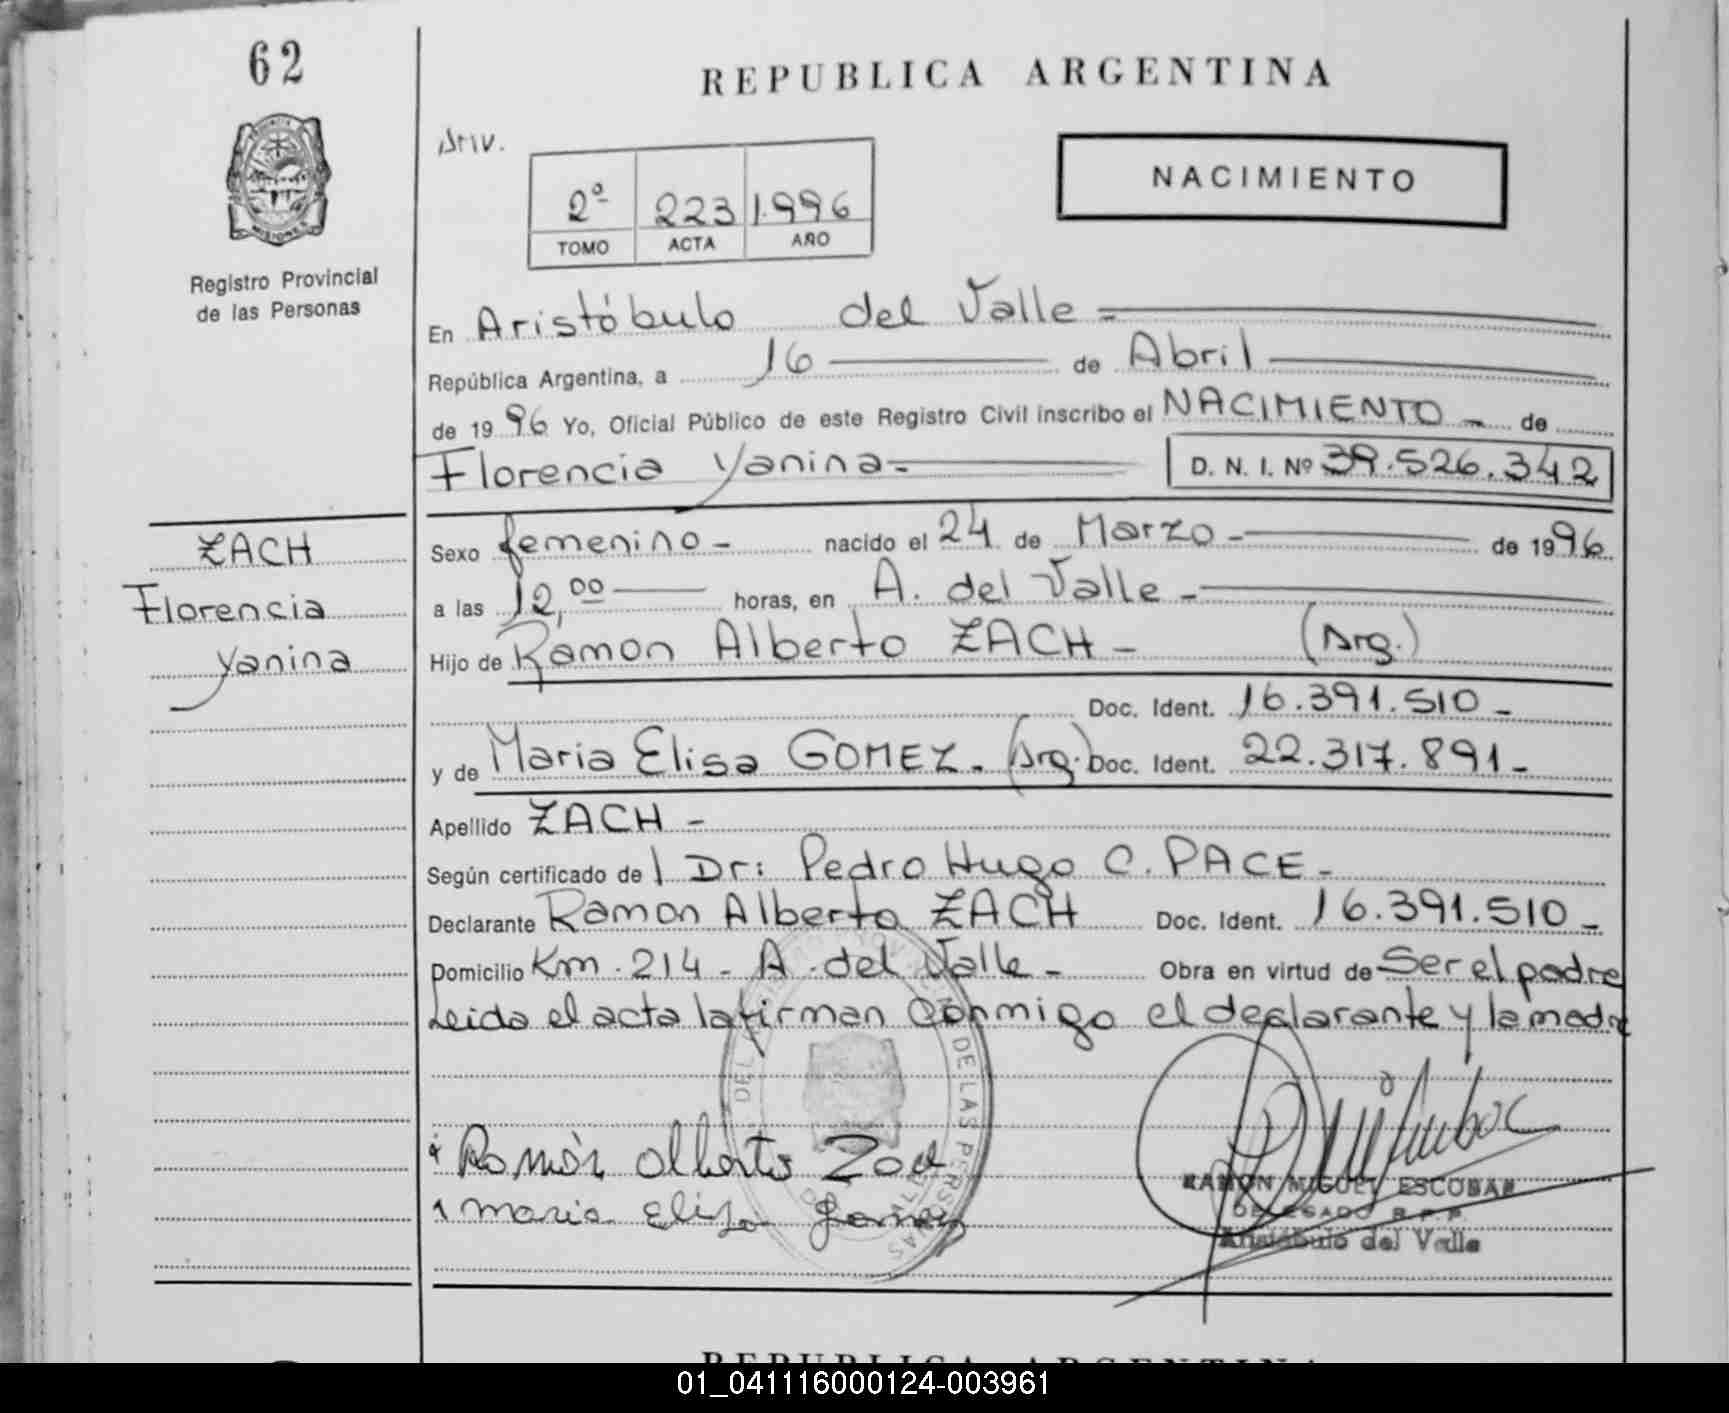 62
REPUBLICA ARGENTINA
PROVINCIA
MISIONES
Registro Provincial
de las Personas
Ariv.
2º 223 1.996
TOMO ACTA AÑO
NACIMIENTO
En Aristóbulo del Valle =
República Argentina, a 16 de Abril
de 1996 Yo, Oficial Público de este Registro Civil inscribo el NACIMIENTO - de
Florencia Yanina= D. N. I. Nº 39.526.342
ZACH
Florencia
Yanina
Sexo femenino - nacido el 24 de Marzo - de 1996
a las 12,00 horas, en A. del Valle -
Hijo de Ramon Alberto ZACH - (Arg.)
Doc. Ident. 16.391.510 -
y de Maria Elisa GOMEZ. (Arg.) Doc. Ident. 22.317.891 -
Apellido ZACH -
Según certificado de l Dr: Pedro Hugo C. PACE -
Declarante Ramon Alberto ZACH Doc. Ident. 16.391.510 -
Domicilio Km. 214 - A. del Valle - Obra en virtud de Ser el padre
Leida el acta la firman conmigo el declarante y la madre
DE LAS PERSONAS
Ramón Alberto Zach
Maria Elisa Gomez
RAMON MIGUEL ESCOBAR
DELEGADO R.P.P.
Aristóbulo del Valle
REPUBLICA ARGENTINA
01_041116000124-003961